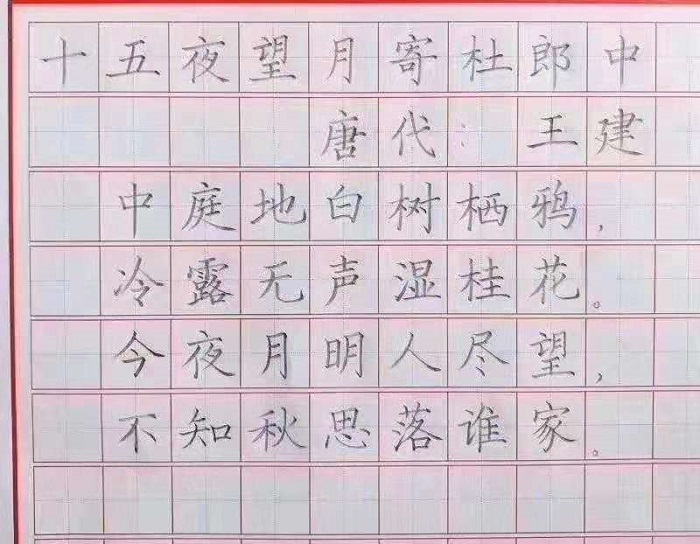 十五夜望月寄杜郎中
唐代：王建
中庭地白树栖鸦，
冷露无声湿桂花。
今夜月明人尽望，
不知秋思落谁家。